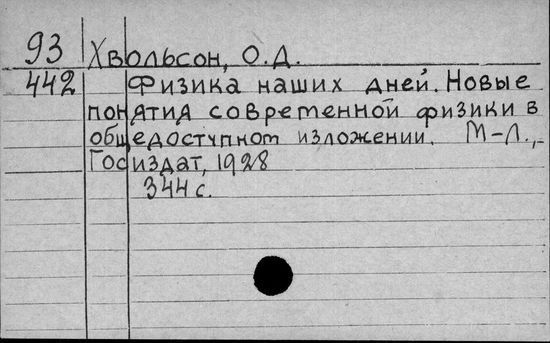 93 Хвольсон, О.Д.
442 Физика наших дней. Новые
понятия современной физики в
общедоступном изложении. М-Л.,
Госиздат, 1928
344 с.